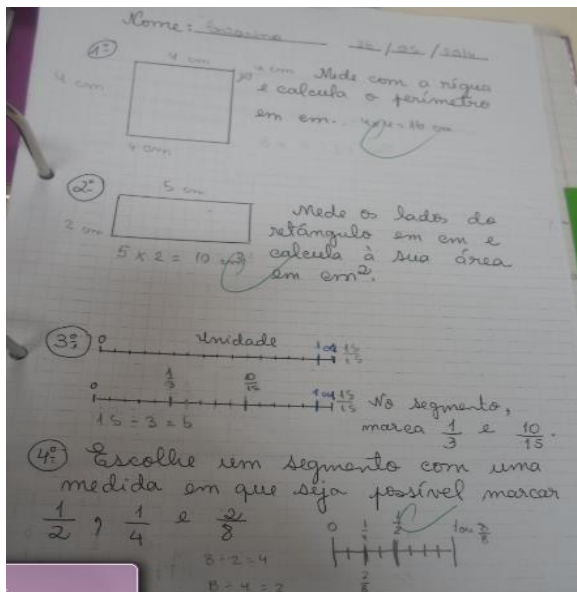 Nome:
1º
4 cm
4 cm
4 cm
4 cm
Mede com a régua
e calcula o perímetro
em cm. 4x4=16 cm
2º
5 cm
2 cm
5 x 2 = 10
Mede os lados do
retângulo em cm e
calcula à sua área
em cm².
3º
0 Unidade 1 ou 15/15
0 1/3 10/15 1 ou 15/15
15 ÷ 3 = 5
No segmento,
marca 1/3 e 10/15.
4º
Escolhe um segmento com uma
medida em que seja possível marcar
1/2, 1/4 e 2/8
0 1/4 1/2 1 ou 8/8
2/8
8 ÷ 2 = 4
8 ÷ 4 = 2